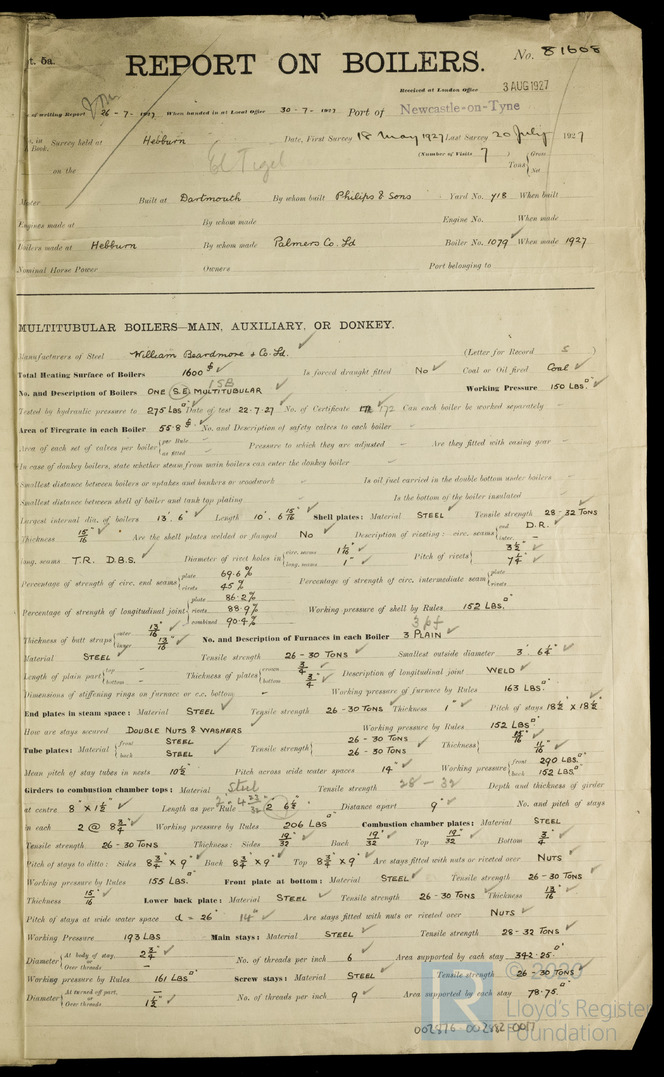 t. 5a.
REPORT ON BOILERS.
No. 81608
Received at London Office 3 AUG 1927
of writing Report 26-7-1927 When handed in at Local Office 30-7-1927 Port of Newcastle-on-Tyne
in Book. Survey held at Hebburn Date, First Survey 18 May 1927 Last Survey 20 July 1927
(Number of Visits 7 )
on the El Tigel Tons { Gross Net
Built at Dartmouth By whom built Philips & Sons Yard No. 718 When built
Engines made at By whom made Engine No. When made
Boilers made at Hebburn By whom made Palmers Co. Ld Boiler No. 1079 When made 1927
Nominal Horse Power Owners Port belonging to
MULTITUBULAR BOILERS—MAIN, AUXILIARY, OR DONKEY.
Manufacturers of Steel William Beardmore & Co. Ld. (Letter for Record S )
Total Heating Surface of Boilers 1600 Is forced draught fitted No Coal or Oil fired Coal
No. and Description of Boilers ONE S.E. MULTITUBULAR 1SB Working Pressure 150 LBS.
Tested by hydraulic pressure to 275 LBS Date of test 22-7-27 No. of Certificate 172 Can each boiler be worked separately
Area of Firegrate in each Boiler 55.8 No. and Description of safety valves to each boiler
Area of each set of valves per boiler { per Rule as fitted Pressure to which they are adjusted Are they fitted with easing gear
In case of donkey boilers, state whether steam from main boilers can enter the donkey boiler
Smallest distance between boilers or uptakes and bunkers or woodwork Is oil fuel carried in the double bottom under boilers
Smallest distance between shell of boiler and tank top plating Is the bottom of the boiler insulated
Largest internal dia. of boilers 13'. 6" Length 10'. 6 15/16 Shell plates: Material STEEL Tensile strength 28-32 TONS
Thickness 15/16" Are the shell plates welded or flanged No Description of riveting: circ. seams { end D.R. inter. –
long. seams T.R. D.B.S. Diameter of rivet holes in { circ. seams 1 1/16" long. seams 1" Pitch of rivets { 3 1/2" 7 1/4"
Percentage of strength of circ. end seams { plate 69.6 % rivets 45 % Percentage of strength of circ. intermediate seam { plate rivets
Percentage of strength of longitudinal joint { plate 86.2 % rivets 88.9 % combined 90.4 % Working pressure of shell by Rules 152 LBS.
Thickness of butt straps { outer 13/16" inner 13/16" No. and Description of Furnaces in each Boiler 3 PLAIN 3 pf
Material STEEL Tensile strength 26-30 TONS Smallest outside diameter 3'. 6 1/4"
Length of plain part { top bottom Thickness of plates { crown 3/4" bottom 3/4" Description of longitudinal joint WELD
Dimensions of stiffening rings on furnace or c.c. bottom Working pressure of furnace by Rules 163 LBS.
End plates in steam space: Material STEEL Tensile strength 26-30 TONS Thickness 1" Pitch of stays 18 1/2" X 18 1/2"
How are stays secured DOUBLE NUTS & WASHERS Working pressure by Rules 152 LBS
Tube plates: Material { front STEEL back STEEL Tensile strength { 26-30 TONS 26-30 TONS Thickness { 15/16" 11/16"
Mean pitch of stay tubes in nests 10 1/2" Pitch across wide water spaces 14" Working pressure { front 290 LBS. back 152 LBS.
Girders to combustion chamber tops: Material Steel Tensile strength 28-32 Depth and thickness of girder
at centre 8" X 1 1/2" Length as per Rule 2' 4 23/32 2 6 1/2" Distance apart 9" No. and pitch of stays
in each 2 @ 8 3/4" Working pressure by Rules 206 LBS Combustion chamber plates: Material STEEL
Tensile strength 26-30 TONS Thickness: Sides 19/32" Back 19/32" Top 19/32" Bottom 3/4"
Pitch of stays to ditto: Sides 8 3/4" X 9" Back 8 3/4" X 9" Top 8 3/4" X 9" Are stays fitted with nuts or riveted over NUTS
Working pressure by Rules 155 LBS. Front plate at bottom: Material STEEL Tensile strength 26-30 TONS
Thickness 15/16" Lower back plate: Material STEEL Tensile strength 26-30 TONS Thickness 13/16"
Pitch of stays at wide water space d = 26" 14" Are stays fitted with nuts or riveted over NUTS
Working Pressure 193 LBS Main stays: Material STEEL Tensile strength 28-32 TONS
Diameter { At body of stay, 2 3/4" or Over threads – No. of threads per inch 6 Area supported by each stay 342.25
Working pressure by Rules 161 LBS Screw stays: Material STEEL Tensile strength 26-30 TONS
Diameter { At turned off part, – or Over threads 1 1/2" No. of threads per inch 9 Area supported by each stay 78.75
© 2020
Lloyd's Register
Foundation
002876-002882-0017